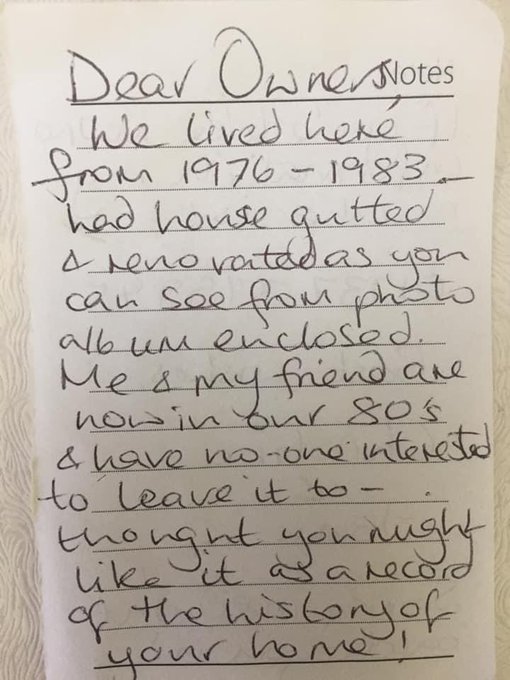 Dear Owners, Notes
We lived here
from 1976 - 1983 -
had house gutted
& renovated as you
can see from photo
album enclosed.
Me & my friend are
now in our 80's
& have no-one interested
to leave it to -
thought you might
like it as a record
of the history of
your home!